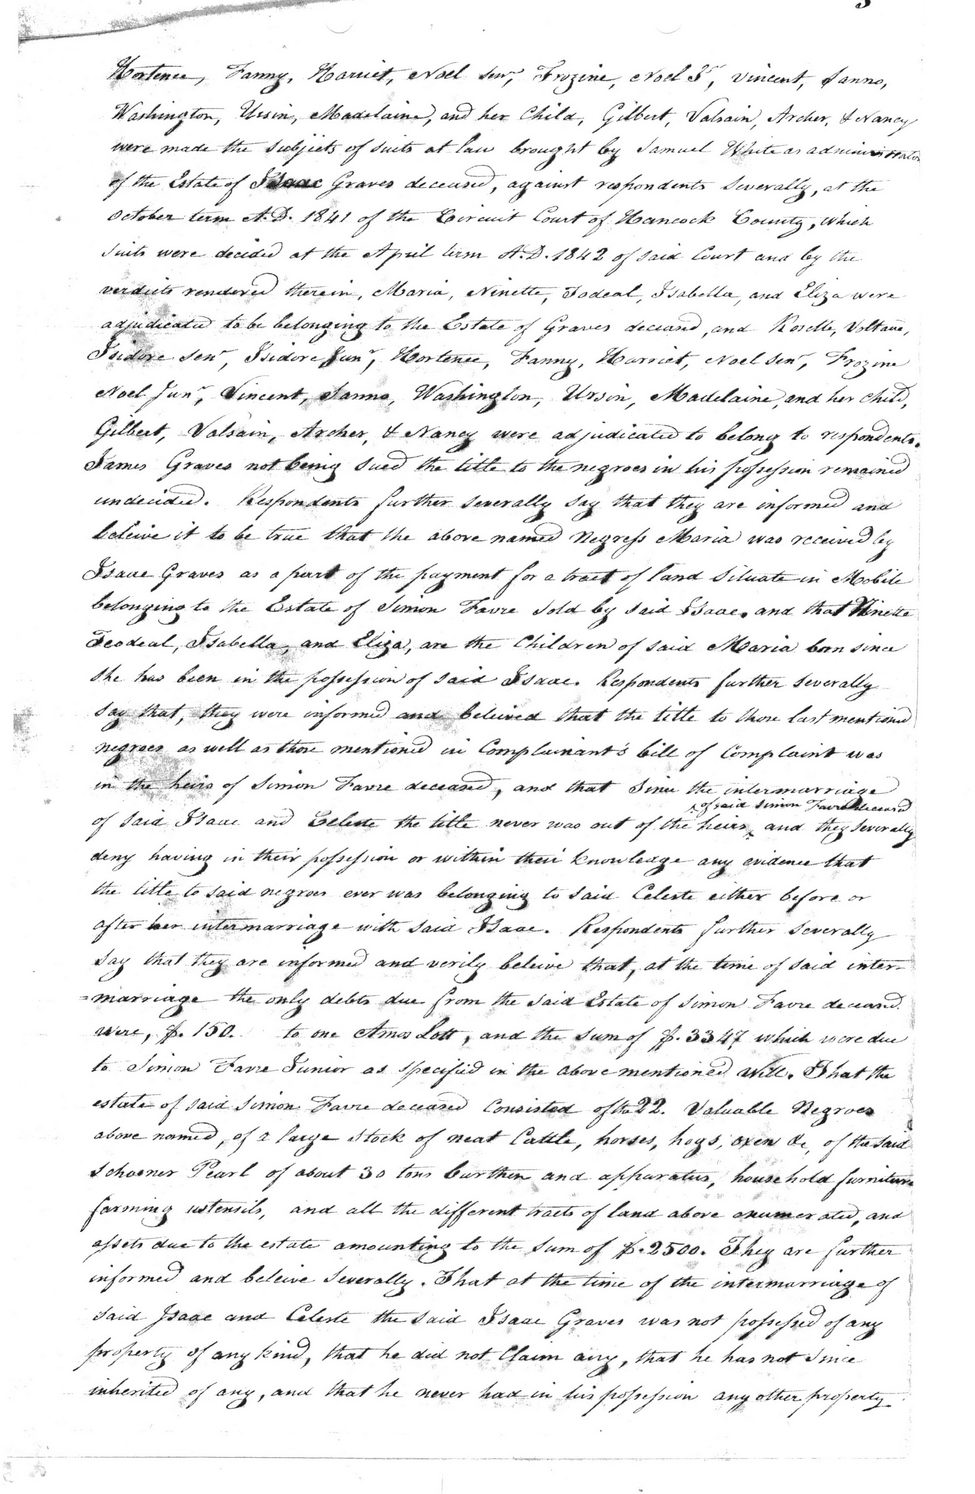 Hortence, Fanny, Harriet, Noel Senr, Frozine, Noel Jr, Vincent, Janno,
Washington, Ursin, Madelaine, and her Child, Gilbert, Valsain, Archer, & Nancy
were made the subjects of suits at law brought by Samuel White as administrator
of the Estate of Isaac Graves deceased, against respondents severally, at the
October term A.D. 1841 of the Circuit Court of Hancock County, which
suits were decided at the April term A.D. 1842 of said Court and by the
verdicts rendered therein, Maria, Ninette, Fodeal, Isabella, and Eliza were
adjudicated to be belonging to the Estate of Graves deceased, and Roselle, Voltaire,
Isidore Senr, Isidore Junr, Hortence, Fanny, Harriet, Noel Senr, Frozine
Noel Junr, Vincent, Janno, Washington, Ursin, Madelaine, and her child,
Gilbert, Valsain, Archer, & Nancy were adjudicated to belong to respondents.
James Graves not being sued the title to the negroes in his possession remained
undecided. Respondents further severally say that they are informed and
beleive it to be true that the above named Negress Maria was received by
Isaac Graves as a part of the payment for a tract of land situate in Mobile
belonging to the Estate of Simon Favre sold by said Isaac. and that Ninette
Feodeal, Isabella, and Eliza, are the Children of said Maria born since
she has been in the possession of said Isaac. Respondents further severally
say that, they were informed and beleived that the title to those last mentioned
negroes as well as those mentioned in Complainant's bill of Complaint was
in the heirs of Simon Favre deceased, and that since the intermarriage
of said Simon Favre deceased
of said Isaac and Celeste the title never was out of the heirs and they severally
deny having in their possession or within their knowledge any evidence that
the title to said negroes ever was belonging to said Celeste either before or
after her intermarriage with said Isaac. Respondents further severally
say that they are informed and verily beleive that, at the time of said inter-
=marriage the only debts due from the said Estate of Simon Favre deceased
were, $. 150. to one Amos Lott, and the sum of $. 3347 which were due
to Simon Favre Junior as specified in the above mentioned Will. That the
estate of said Simon Favre deceased Consisted of the 22. Valuable Negroes
above named, of a large stock of neat Cattle, horses, hogs, oxen &c, of the said
Schooner Pearl of about 30 tons burthen and apparatus, household furniture
farming ustensils, and all the different tracts of land above enumerated, and
assets due to the estate amounting to the sum of $. 2500. They are further
informed and beleive severally. That at the time of the intermarriage of
said Isaac and Celeste the said Isaac Graves was not possessed of any
property of any kind, that he did not Claim any, that he has not since
inherited of any, and that he never had in his possession any other property